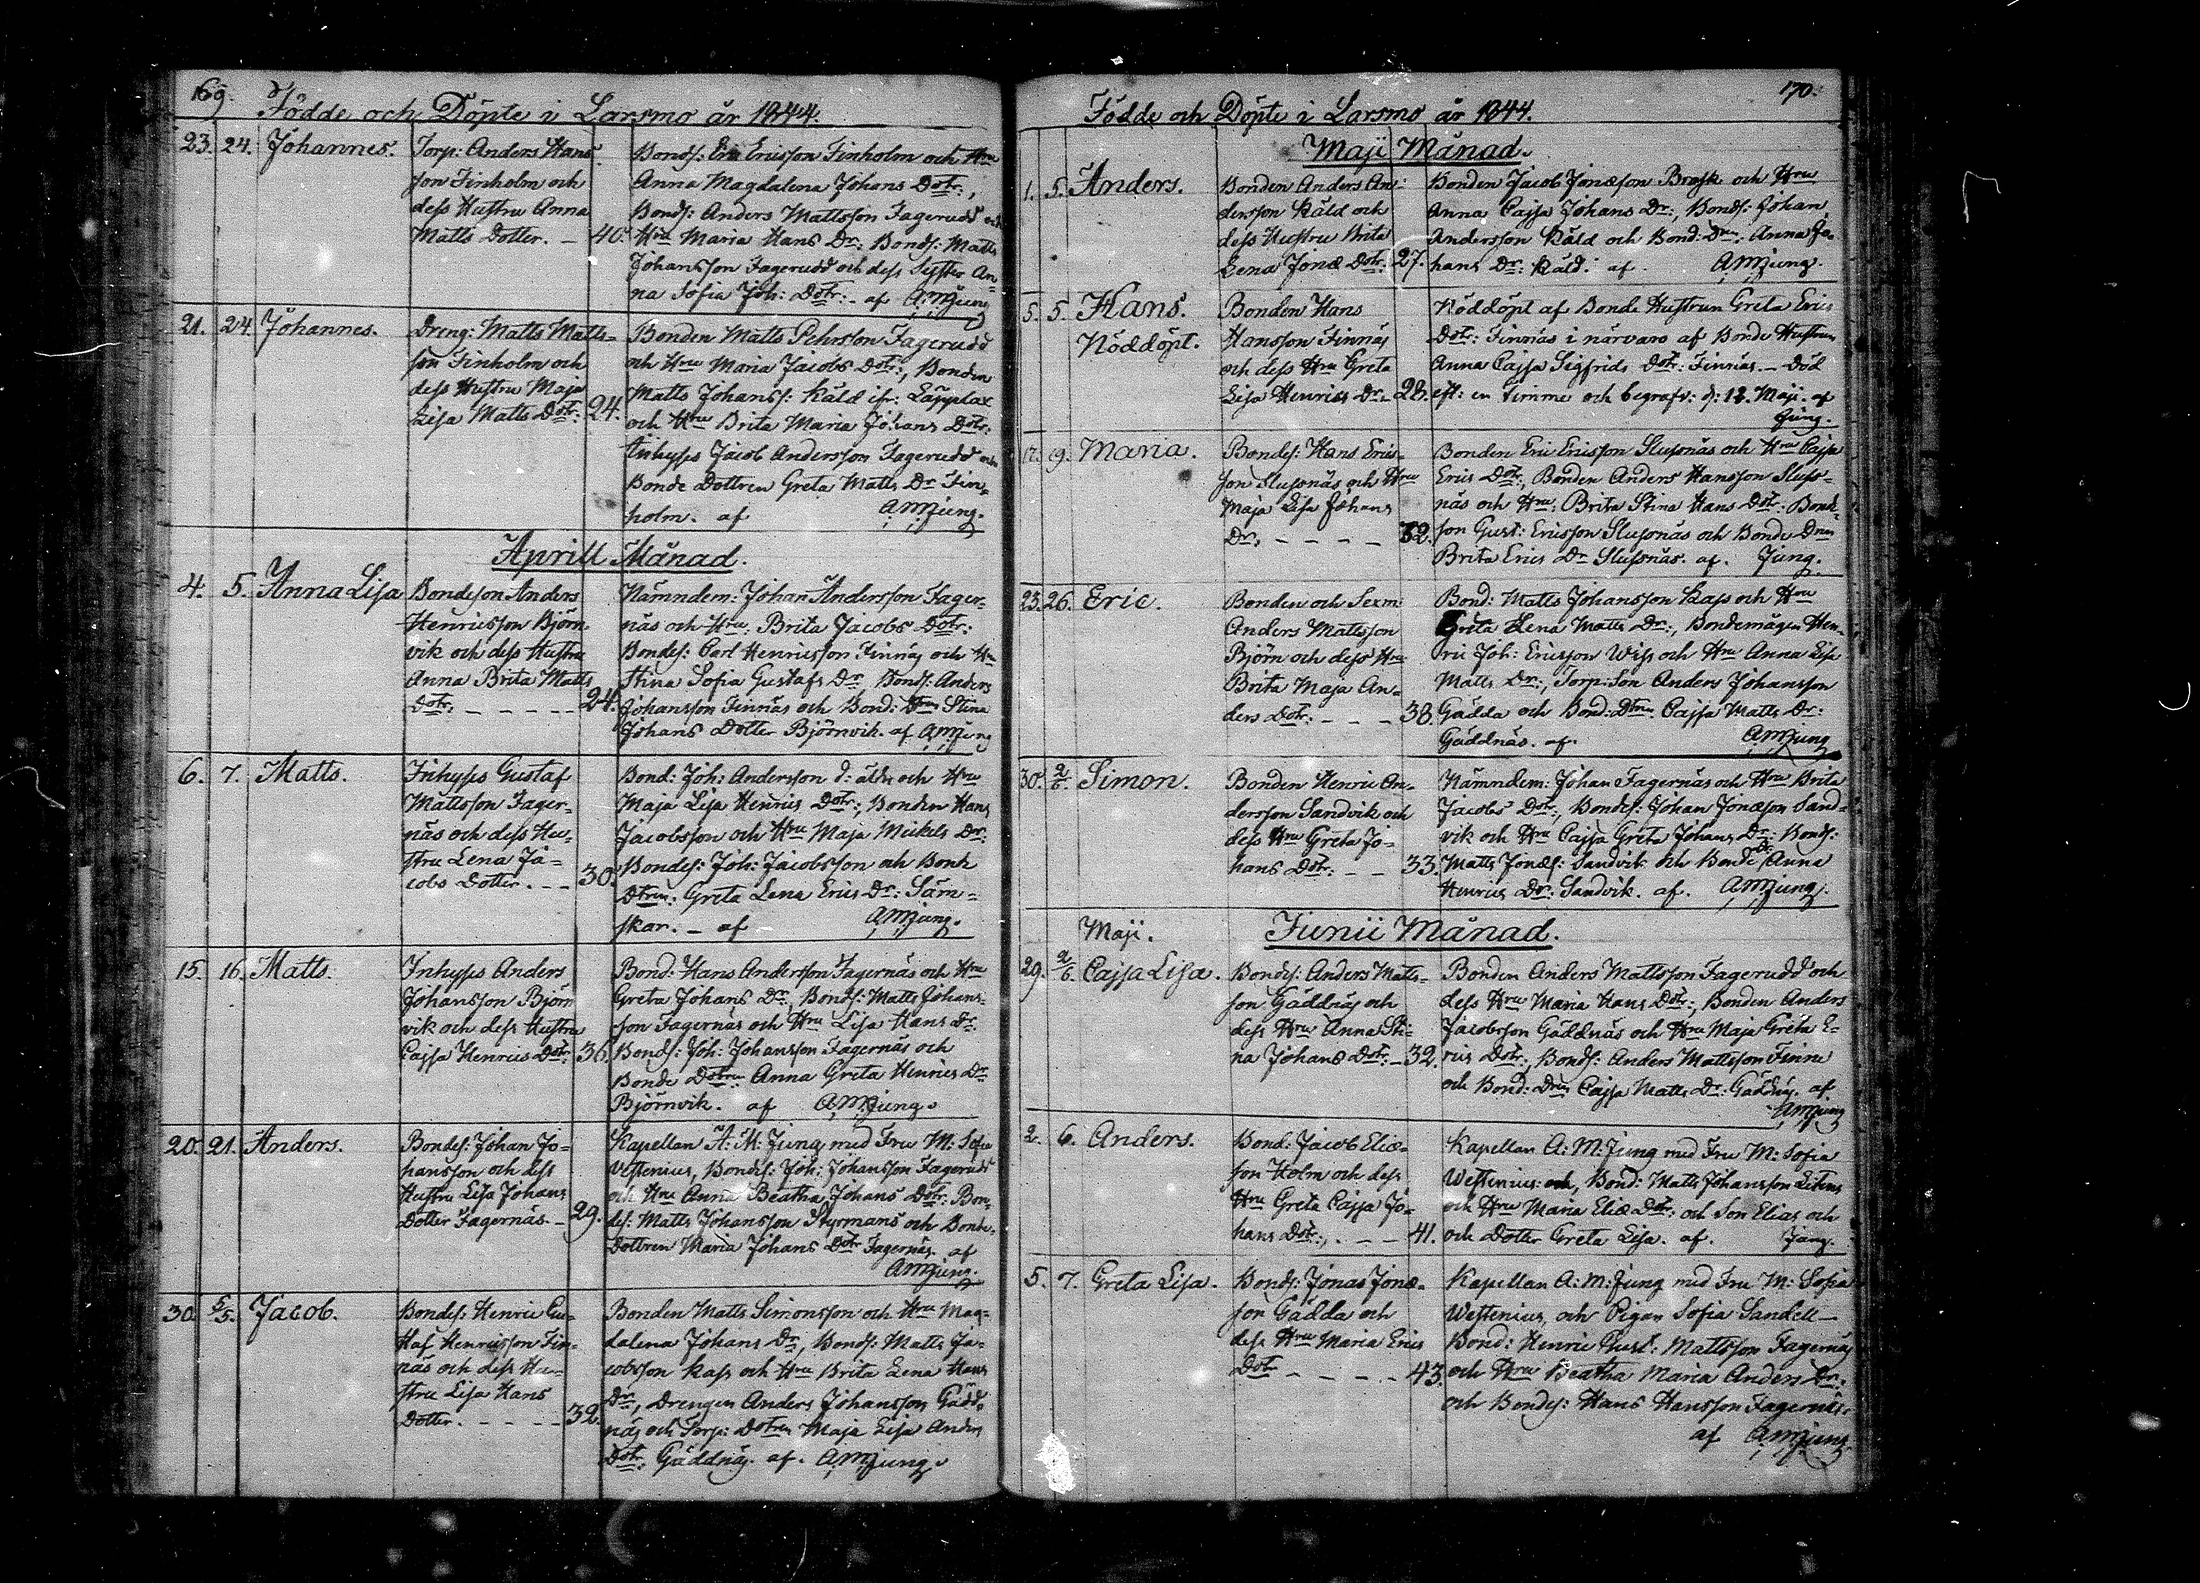 169.
Födde och Döpte i Larsmo år 1844.
23. 24. Johannes.
Torp: Anders Hans
son Finholm och
dess Hustru Anna
Matts Dotter. – 40.
Bonds: Eric Ericsson Finholm och Hru
Anna Magdalena Johans Dotr:,
Bonds: Anders Mattsson Fagerudd och
Hru Maria Hans Dr: Bonds: Matts
Johansson Fagerudd och dess Syster An-
na Sofia Joh: Dotr: – af AMJung
21. 24. Johannes.
Dreng: Matts Matts-
son Finholm och
dess Hustru Maja
Lisa Matts Dotr: 24.
Bonden Matts Pehrsson Fagerudd
och Hru Maria Jacobs Dotr:, Bonden
Matts Johanss: Käld ifr: Läpplax
och Hru Brita Maria Johans Dotr:
Inhyss Jacob Andersson Fagerudd och
Bonde Dottren Greta Matts Dr Fin-
holm. af AMJung.
Aprill Månad.
4. 5. Anna Lisa
Bondeson Anders
Henricsson Björn
vik och dess Hustru
Anna Brita Matts
Dotr: – – – – – 24.
Nämndem: Johan Andersson Fager-
näs och Hru: Brita Jacobs Dotr:
Bondes: Carl Henricsson Finnäs och Hru
Stina Sofia Gustafs Dr Bonds: Anders
Johansson Finnäs och Bond: Dtren Stina
Johans Dotter Björnvik. af AMJung
6. 7. Matts.
Inhyss Gustaf
Mattsson Fager-
näs och dess Hu-
stru Lena Ja-
cobs Dotter. – – 30.
Bond: Joh: Andersson d: äldr och Hru
Maja Lisa Henrics Dotr:, Bonden Hans
Jacobsson och Hru Maja Mickels Dr:
Bondes: Joh: Jacobsson och Bond
Dtren: Greta Lena Erics Dr: Säm-
skar. – af AMJung.
15. 16. Matts.
Inhyss Anders
Johansson Björn
vik och dess Hustru
Cajsa Henrics Dotr: 36.
Bond: Hans Andersson Fagernäs och Hru
Greta Johans Dr, Bonds: Matts Johans-
son Fagernäs och Hru Lisa Hans Dr:
Bonds: Joh: Johansson Fagernäs och
Bonde Dotren: Anna Greta Henrics Dr
Björnvik. af AMJung.
20. 21. Anders.
Bondes: Johan Jo-
hansson och dess
Hustru Lisa Johans
Dotter Fagernäs. – 29.
Kapellan A: M: Jung med Fru M: Sofia
Westenius, Bondes: Joh: Johansson Fagerudd
och Hru Anna Beatha Johans Dotr: Bon-
des: Matts Johansson Styrmans och Bonde-
Dottren Maria Johans Dotr Fagernäs. af
AMJung.
30. 5/5. Jacob.
Bondes: Henric Gu-
staf Henricsson Fin-
näs och dess Hu-
stru Lisa Hans
Dotter. – – – – – 32.
Bonden Matts Simonsson och Hru Mag-
dalena Johans Dr, Bonds: Matts Ja-
cobsson Kass och Hru Brita Lena Hans
Dr, Drengen Anders Johansson Gädd-
näs och Torp: Dotren Maja Lisa Anders
Dotr: Gäddnäs. af. AMJung.
170.
Födde och Döpte i Larsmo år 1844.
Maji Månad.
1. 5. Anders.
Bonden Anders An-
dersson Käld och
dess Hustru Brita
Lena Jonæ Dotr: 27.
Bonden Jacob Jonæson Brask och Hru
Anna Cajsa Johans Dr:, Bonds: Johan
Andersson Käld och Bond: Dren: Anna Jo-
hans Dr: Käld. af. AMJung.
5. 5. Hans.
Nöddöpt.
Bonden Hans
Hansson Finnäs
och dess Hru Greta
Lisa Henrics Dr. 28.
Nöddöpt af Bonde Hustrun Greta Erics
Dotr: Finnäs i närvaro af Bonde Hustrun
Anna Cajsa Sigfrids Dotr: Finnäs. – Död
eft: en Timme och begrafv: d: 12. Maji. af
Jung.
17. 19. Maria.
Bondes: Hans Erics-
son Slusnäs och Hru
Maja Lisa Johans
Dr: – – – – 32.
Bonden Eric Ericsson Slusnäs och Hru Cajsa
Erics Dotr:, Bonden Anders Hansson Sluss-
näs och Hru: Brita Stina Hans Dotr: Bonde-
son Gust: Ericsson Slusnäs och Bonde Dren
Brita Erics Dr Slusnäs. af. Jung.
23. 26. Eric.
Bonden och Sexm:
Anders Mattsson
Björn och dess Hru
Brita Maja An-
ders Dotr: – – – 38.
Bond: Matts Johansson Kass och Hru
Greta Lena Matts Dr:, Bondemågen Hen-
ric Joh: Ericsson Wiss och Hru Anna Lisa
Matts Dr:, Torp: Son Anders Johansson
Gädda och Bond: Dtren Cajsa Matts Dr:
Gäddnäs. af. AMJung
30. 2/6. Simon.
Bonden Henric An-
dersson Sandvik och
dess Hru Greta Jo-
hans Dotr: – – 33.
Nämndem: Johan Fagernäs och Hru Brita
Jacobs Dotr:, Bondes: Johan Jonæson Sand-
vik och Hru Cajsa Greta Johans Dr: Bonds:
Matts Jonæs: Sandvik och Bonde Dr Anna
Henrics Dr: Sandvik. af. AMJung.
Junii Månad.
Maji.
29. 2/6. Cajsa Lisa.
Bondes: Anders Matts-
son Gäddnäs och
dess Hru Anna Sti-
na Johans Dotr: – 32.
Bonden Anders Mattsson Fagerudd och
dess Hru Maria Hans Dotr:, Bonden Anders
Jacobsson Gäddnäs och Hru Maja Greta E-
rics Dotr:, Bonds: Anders Mattsson Finne
och Bond: Dren Cajsa Matts Dr: Gäddnäs. af.
AMJung
2. 6. Anders.
Bond: Jacob Eliæ-
son Holm och dess
Hru Greta Cajsa Jo-
hans Dotr:, – – 41.
Kapellan A: M: Jung med Fru M: Sofia
Westenius och, Bond: Matts Johansson Litens
och Hru Maria Eliæ Dotr: och Son Elias och
och Dotter Greta Lisa. af. Jung.
5. 7. Greta Lisa.
Bonds: Jonas Jonæ-
son Gädda och
dess Hru Maria Erics
Dotr – – – – – 43.
Kapellan A: M: Jung med Fru M: Sofia
Westenius, och Pigan Sofia Sandell –
Bond: Henric Gust: Mattsson Fagernäs
och Hru Beatha Maria Anders Dr:
och Bondes: Hans Hansson Fagernäs.
af AMJung.